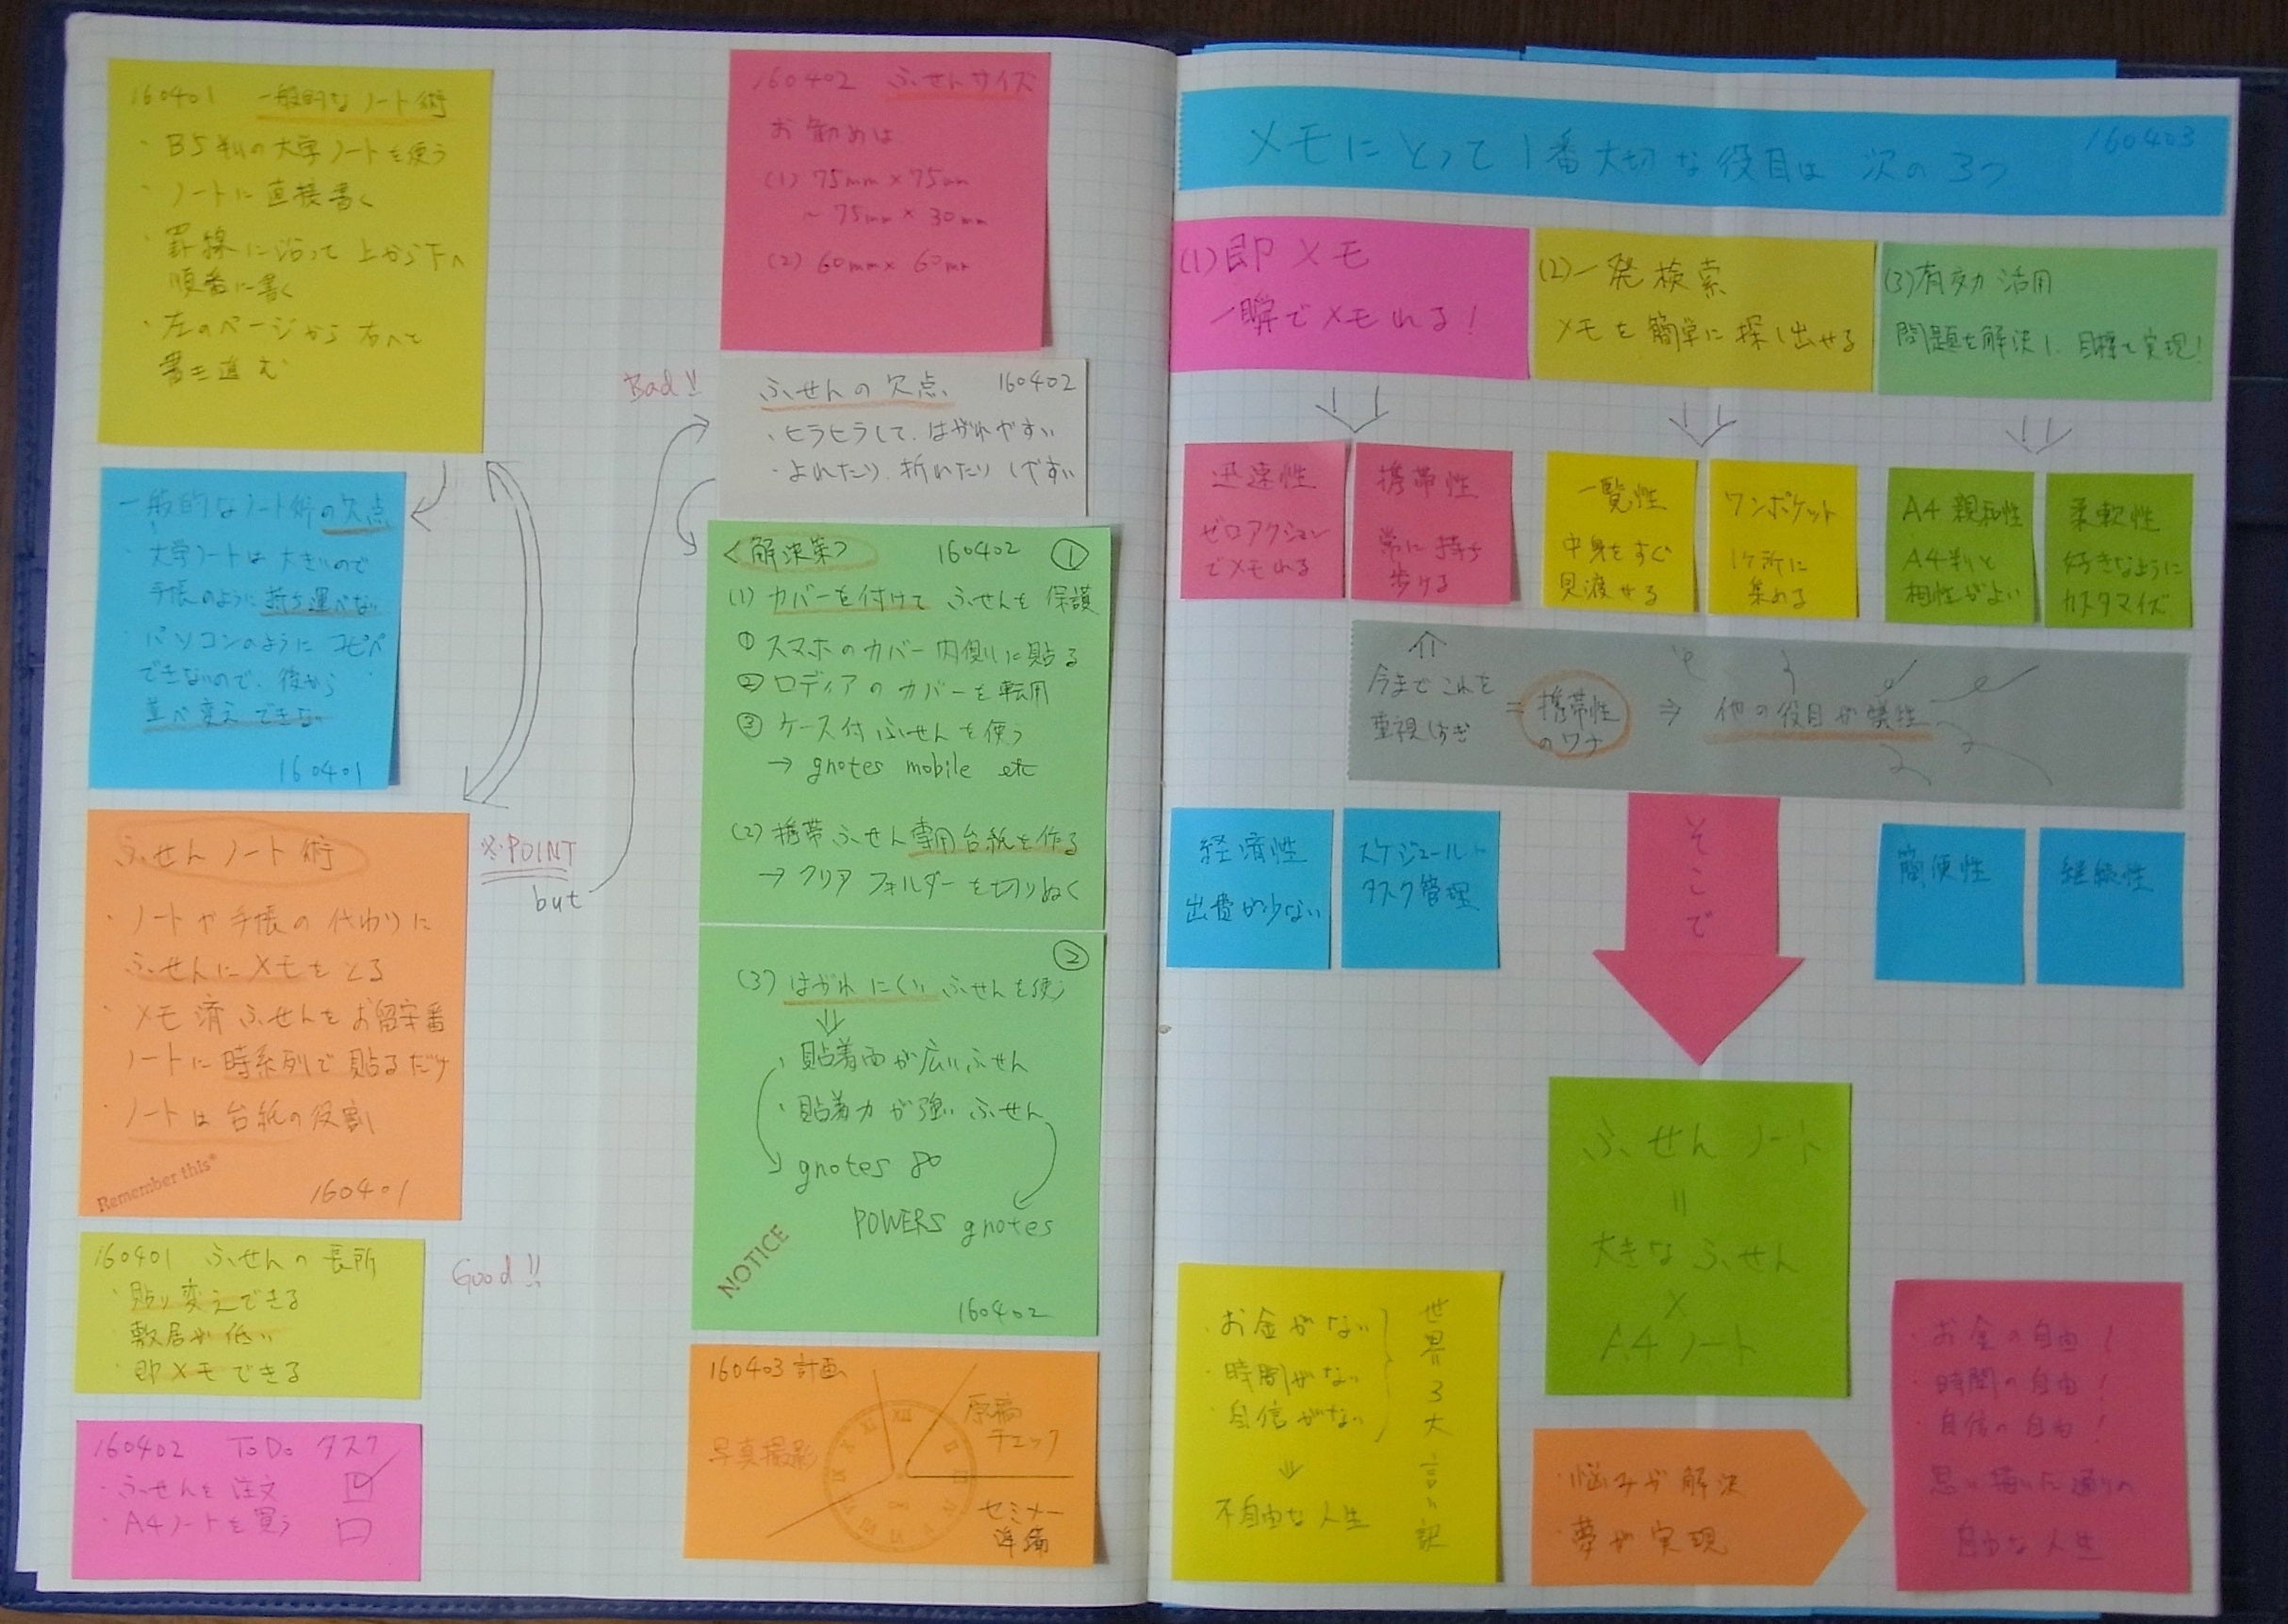 160401 一般的なノート術
・B5判の大学ノートを使う
・ノートに直接書く
・罫線に沿って上から下へ
順番に書く
・左のページから右へと
書き進む
一般的なノート術の欠点
・大学ノートは大きいので
手帳のように持ち運べない
・パソコンのようにコピペ
できないので、後から
並べ変えできない
160401
ふせんノート術
・ノートや手帳の代わりに
ふせんにメモをとる
・メモ済ふせんをお留守番
ノートに時系列で貼るだけ
・ノートは台紙の役割
Remember this
160401
※POINT
but
160401 ふせんの長所
・貼り変えできる
・敷居が低い
・即メモできる
Good!!
160402 ToDo タスク
・ふせんを注文
・A4ノートを買う
160402 ふせんサイズ
お勧めは
(1) 75mm×75mm
～75mm×30mm
(2) 60mm×60mm
Bad!!
ふせんの欠点 160402
・ヒラヒラして、はがれやすい
・よれたり、折れたりしやすい
<解決策> 160402 ①
(1) カバーを付けてふせんを保護
① スマホのカバー内側に貼る
② ロディアのカバーを転用
③ ケース付ふせんを使う
→ gnotes mobile etc
(2) 携帯ふせん専用台紙を作る
→ クリアフォルダーを切りぬく
②
(3) はがれにくいふせんを使う
・貼着面が広いふせん
・貼着力が強いふせん
gnotes 80
POWERS gnotes
NOTICE
160402
160403 計画
写真撮影
原稿
チェック
セミナー
準備
XII
メモにとって1番大切な役目は次の3つ
160403
(1) 即メモ
一瞬でメモれる!
(2) 一発検索
メモを簡単に探し出せる
(3) 有効活用
問題を解決し、目標を実現!
迅速性
ゼロアクション
でメモれる
携帯性
常に持ち
歩ける
一覧性
中身をすぐ
見渡せる
ワンポケット
1ケ所に
集める
A4親和性
A4判と
相性がよい
柔軟性
好きなように
カスタマイズ
今までこれを
重視しすぎ
=
携帯性
のワナ
⇒ 他の役目が犠牲
経済性
出費が少ない
スケジュール・
タスク管理
そこで
簡便性
継続性
ふせんノート
=
大きなふせん
×
A4ノート
・お金がない
・時間がない
・自信がない
世界3大言い訳
⇓
不自由な人生
・悩みが解決
・夢が実現
・お金の自由!
・時間の自由!
・自信の自由!
思い描いた通りの
自由な人生